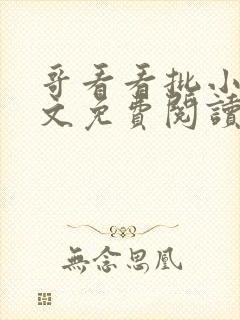 哥看看批小
文免費閱讀
無念思凰